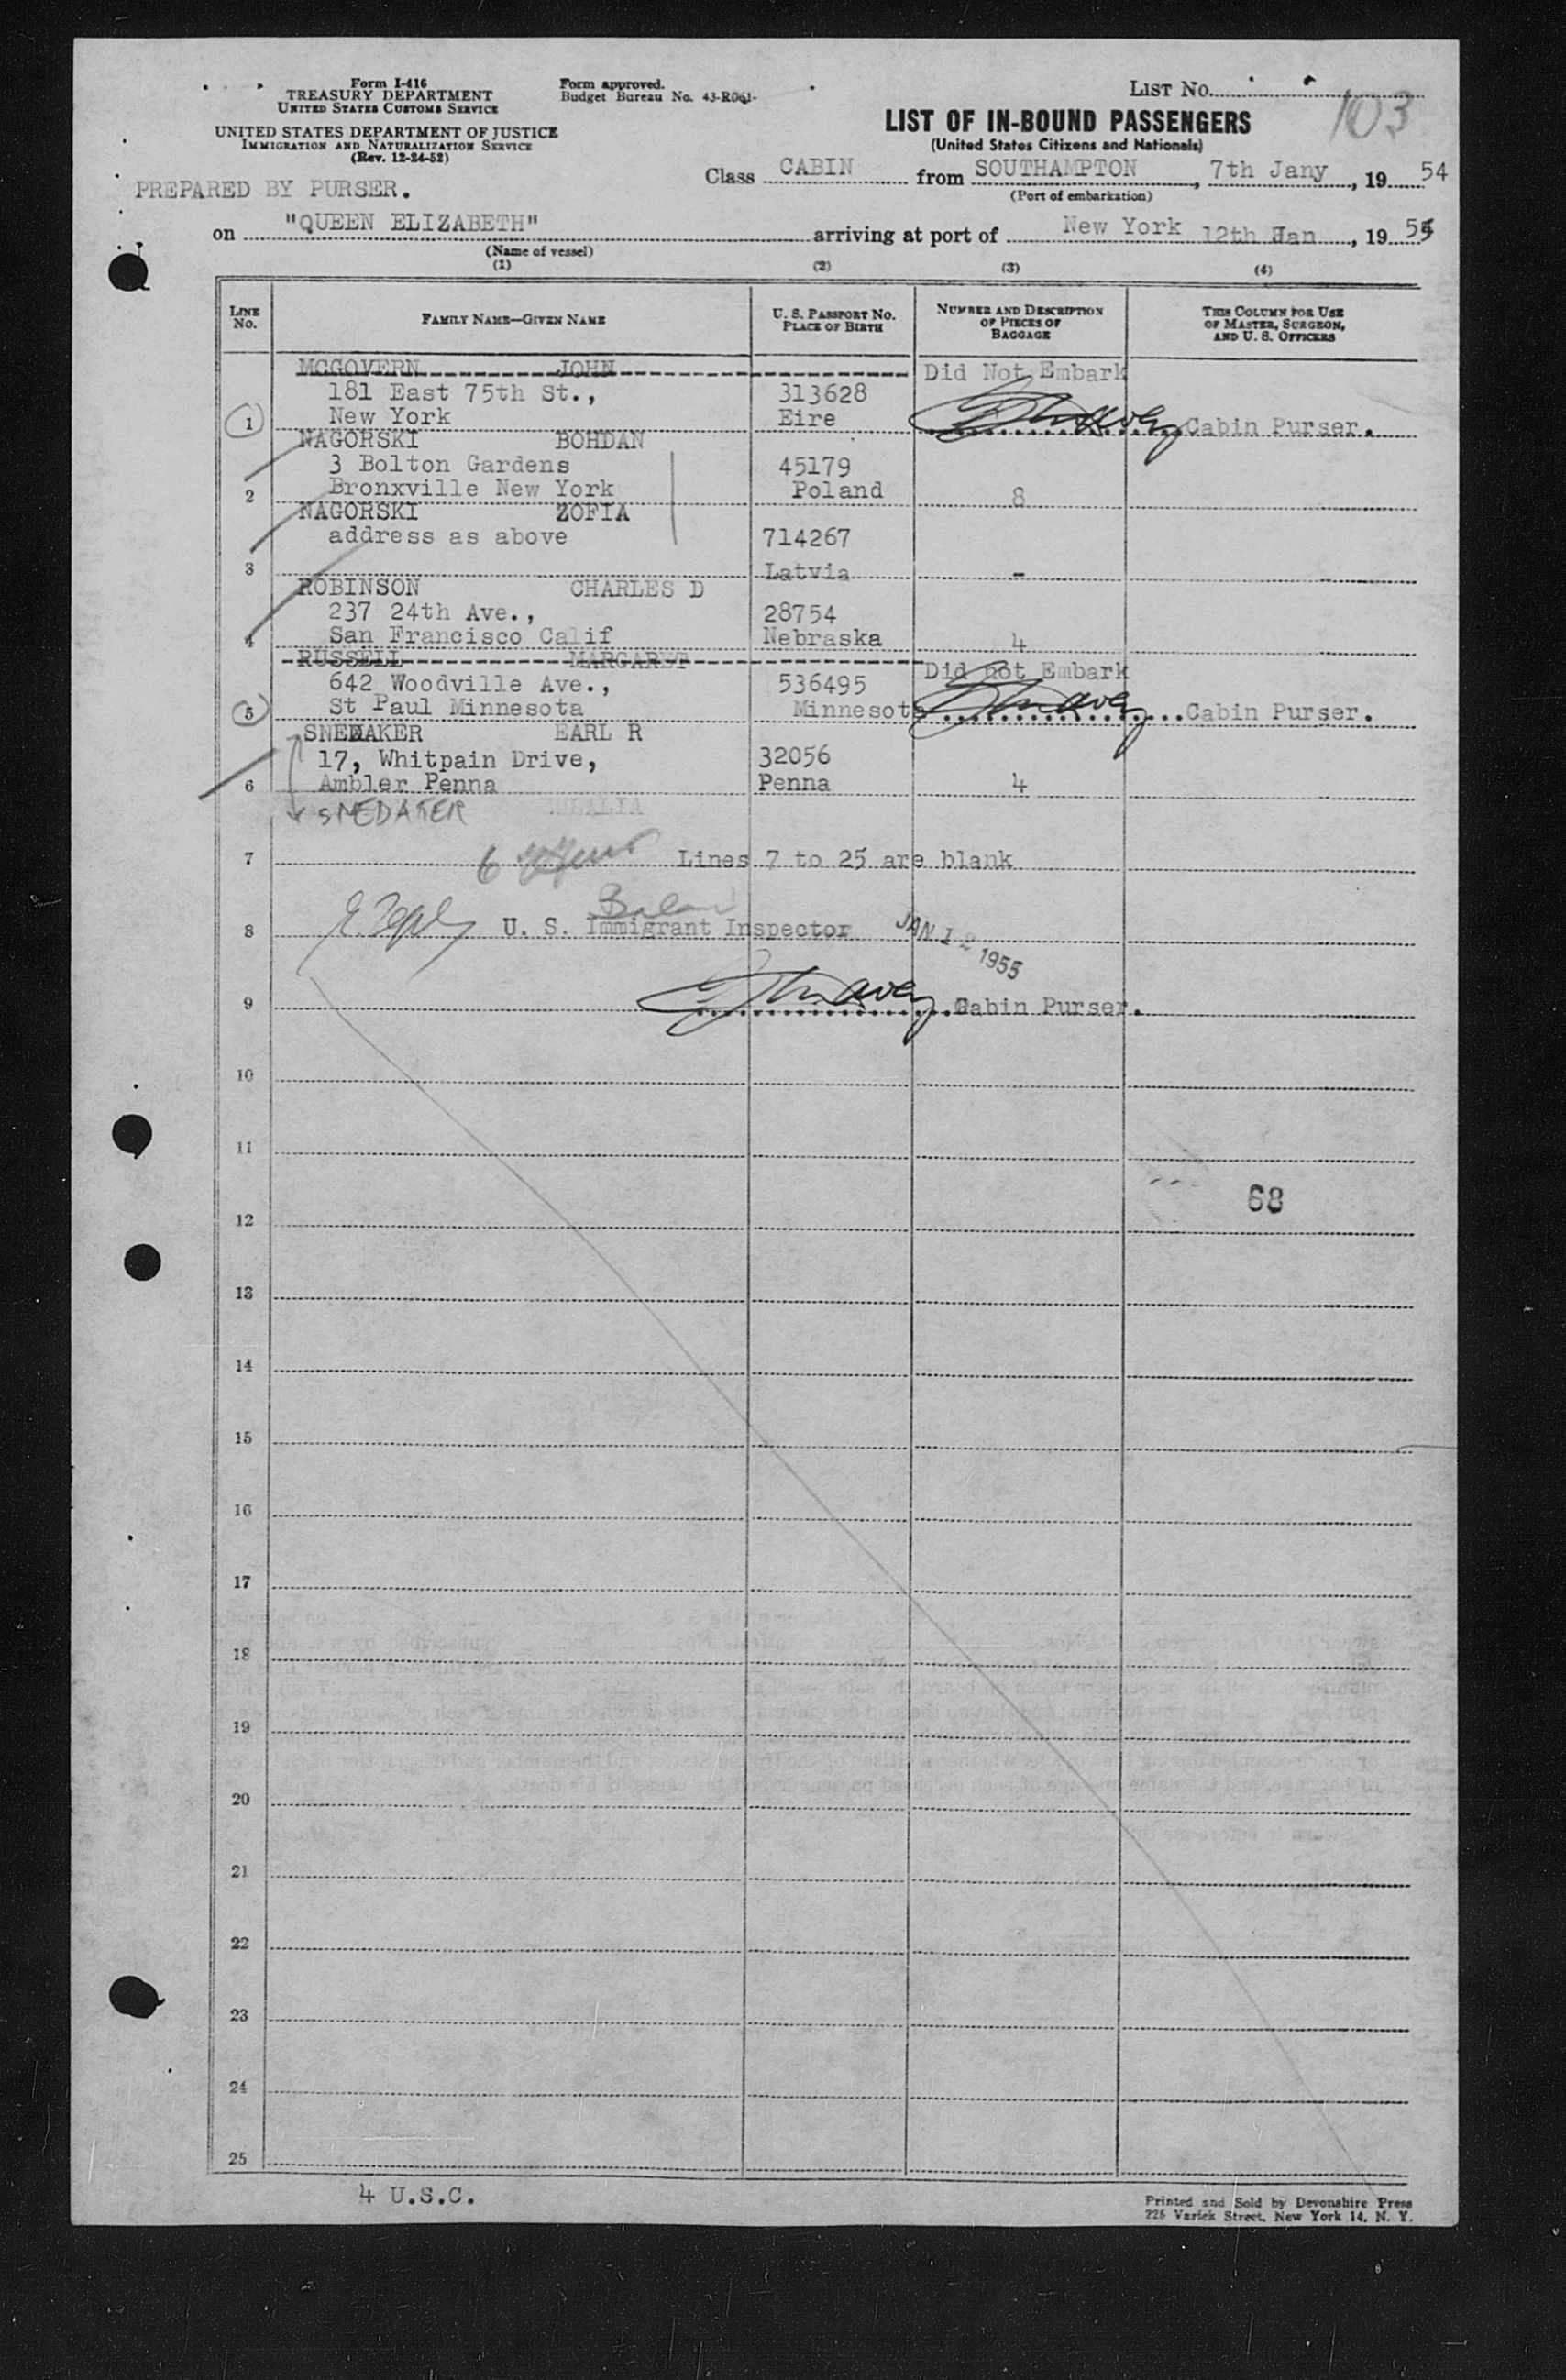 Form I-416
TREASURY DEPARTMENT
UNITED STATES CUSTOMS SERVICE
UNITED STATES DEPARTMENT OF JUSTICE
IMMIGRATION AND NATURALIZATION SERVICE
(Rev. 12-24-52)
PREPARED BY PURSER.
Form approved.
Budget Bureau No. 43-R061-
LIST No.
103
LIST OF IN-BOUND PASSENGERS
(United States Citizens and Nationals)
Class CABIN from SOUTHAMPTON, 7th Jany, 19 54
(Port of embarkation)
on "QUEEN ELIZABETH" arriving at port of New York 12th Jan, 19 55
(Name of vessel)
(1) (2) (3) (4)
LINE No. FAMILY NAME—GIVEN NAME U. S. PASSPORT No. PLACE OF BIRTH NUMBER AND DESCRIPTION OF PIECES OF BAGGAGE THIS COLUMN FOR USE OF MASTER, SURGEON, AND U. S. OFFICERS
MCGOVERN JOHN Did Not Embark
181 East 75th St., 313628
1 New York Eire Cabin Purser.
NAGORSKI BOHDAN
3 Bolton Gardens 45179
2 Bronxville New York Poland 8
NAGORSKI ZOFIA
address as above 714267
3 Latvia -
ROBINSON CHARLES D
237 24th Ave., 28754
4 San Francisco Calif Nebraska 4
RUSSELL MARGARET Did not Embark
642 Woodville Ave., 536495
5 St Paul Minnesota Minnesota Cabin Purser.
SNEDAKER EARL R
17, Whitpain Drive, 32056
6 Ambler Penna Penna 4
SNEDAKER
7 6 Lines 7 to 25 are blank
8 U. S. Immigrant Inspector JAN 12 1955
9 Cabin Purser.
10
11
68
12
13
14
15
16
17
18
19
20
21
22
23
24
25
4 U.S.C.
Printed and Sold by Devonshire Press
225 Varick Street, New York 14, N. Y.